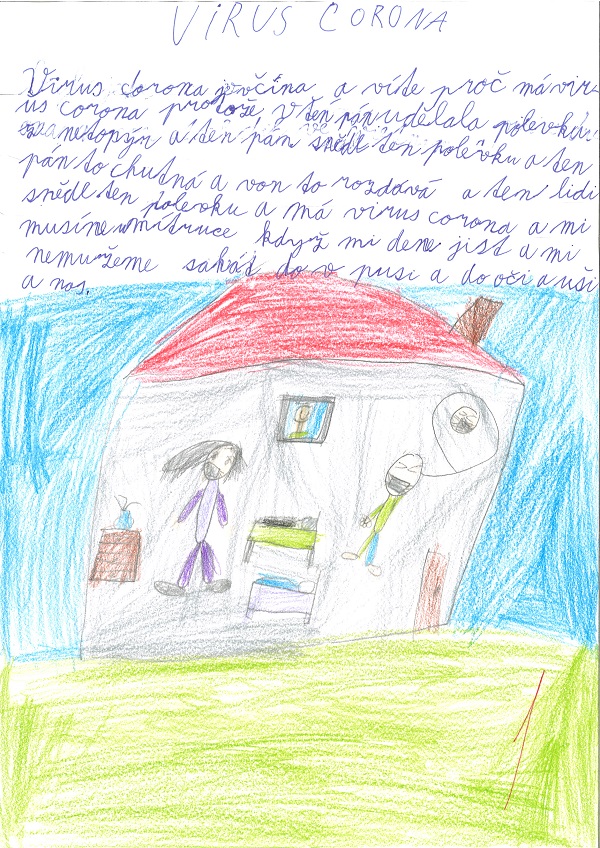 VIRUS CORONA
Virus corona je včina a víte proč má vir-
us corona protože v ten pán udělala polevku
z netopýr a ten pán snědl ten polevku a ten
pán to chutná a von to rozdává a ten lidi
snědl ten polevku a má virus corona a mi
musíne mítruce když mi dene jíst a mi
nemužeme sahát do v pusi a do oči a uši
a nos.